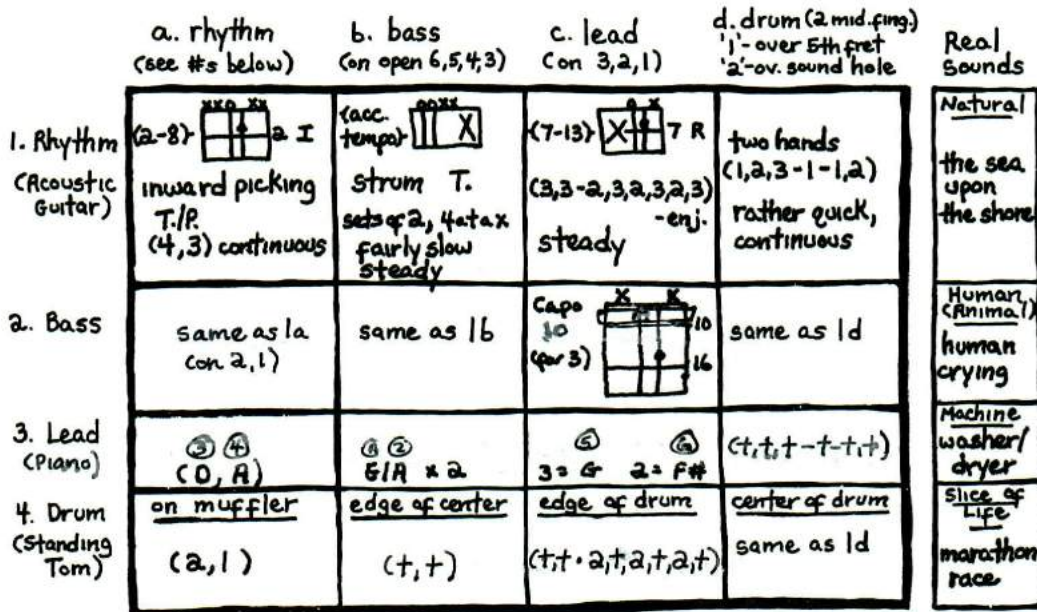 a. rhythm
(see #s below)
b. bass
(on open 6,5,4,3)
c. lead
(on 3,2,1)
d. drum (2 mid.fing.)
'1'-over 5th fret
'2'-ov. sound hole
Real
Sounds
1. Rhythm
(Acoustic
Guitar)
xx0 xx
(2-8) 2 I
inward picking
T./P.
(4,3) continuous
(acc.
tempo)
00xx
X
strum T.
sets of 2, 4 at a x
fairly slow
steady
0 x
(7-13) X 7 R
(3,3-2,3,2,3,2,3)
-enj.
steady
two hands
(1,2,3-1-1,2)
rather quick,
continuous
Natural
the sea
upon
the shore
2. Bass
same as 1a
(on 2,1)
same as 1b
Capo
10
(for 3)
X X
10
16
same as 1d
Human
(Animal)
human
crying
3. Lead
(Piano)
3 4
(D, A)
2
G/A x 2
5
3 = G 2 = F#
(t,t,t-t-t,t)
Machine
washer/
dryer
4. Drum
(Standing
Tom)
on muffler
(2,1)
edge of center
(t,t)
edge of drum
(t,t·2,t,2,t,2,t)
center of drum
same as 1d
Slice of
Life
marathon
race